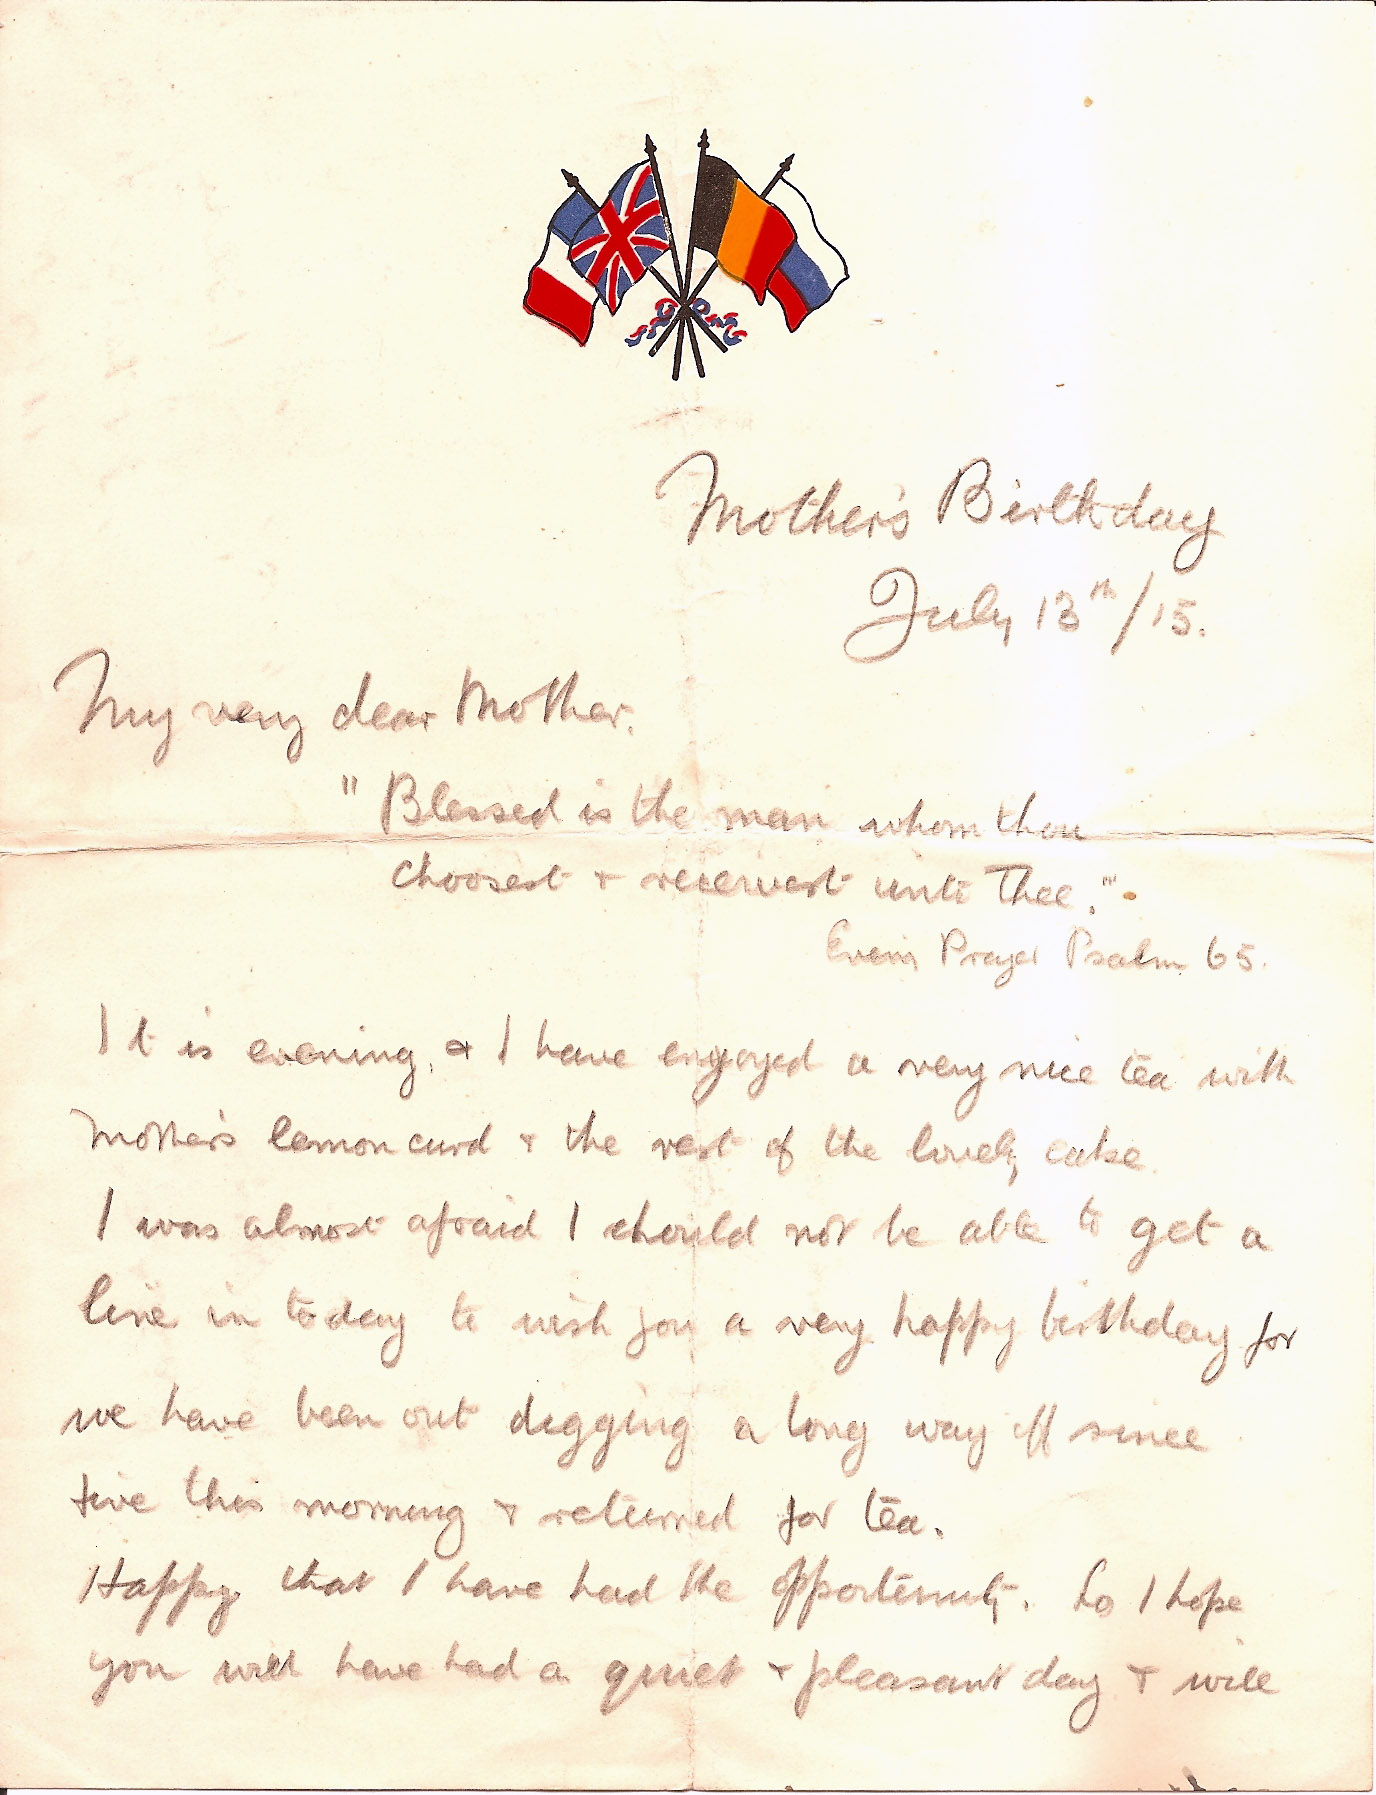 Mother's Birthday
July 13th/15.
My very dear Mother.
"Blessed is the man whom thou
choosest & receivest unto Thee."
Evenin Prayer Psalm 65.
It is evening, & I have enjoyed a very nice tea with
Mother's lemon curd & the rest of the lovely cake.
I was almost afraid I should not be able to get a
line in today to wish you a very happy birthday for
we have been out digging a long way off since
five this morning & returned for tea.
Happy that I have had the opportunity. So I hope
you will have had a quiet & pleasant day & will